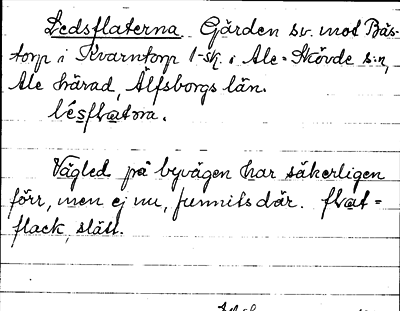 Ledsflaterna. Gärden sv. mot Bäs-
torp i Kvarntorp 1-sk. i Ale-Skövde s:n,
Ale härad, Älfsborgs län.
lésflatŋa.
Vägled på byvägen har säkerligen
förr, men ej nu, funnits där. flat =
flack, slätt.